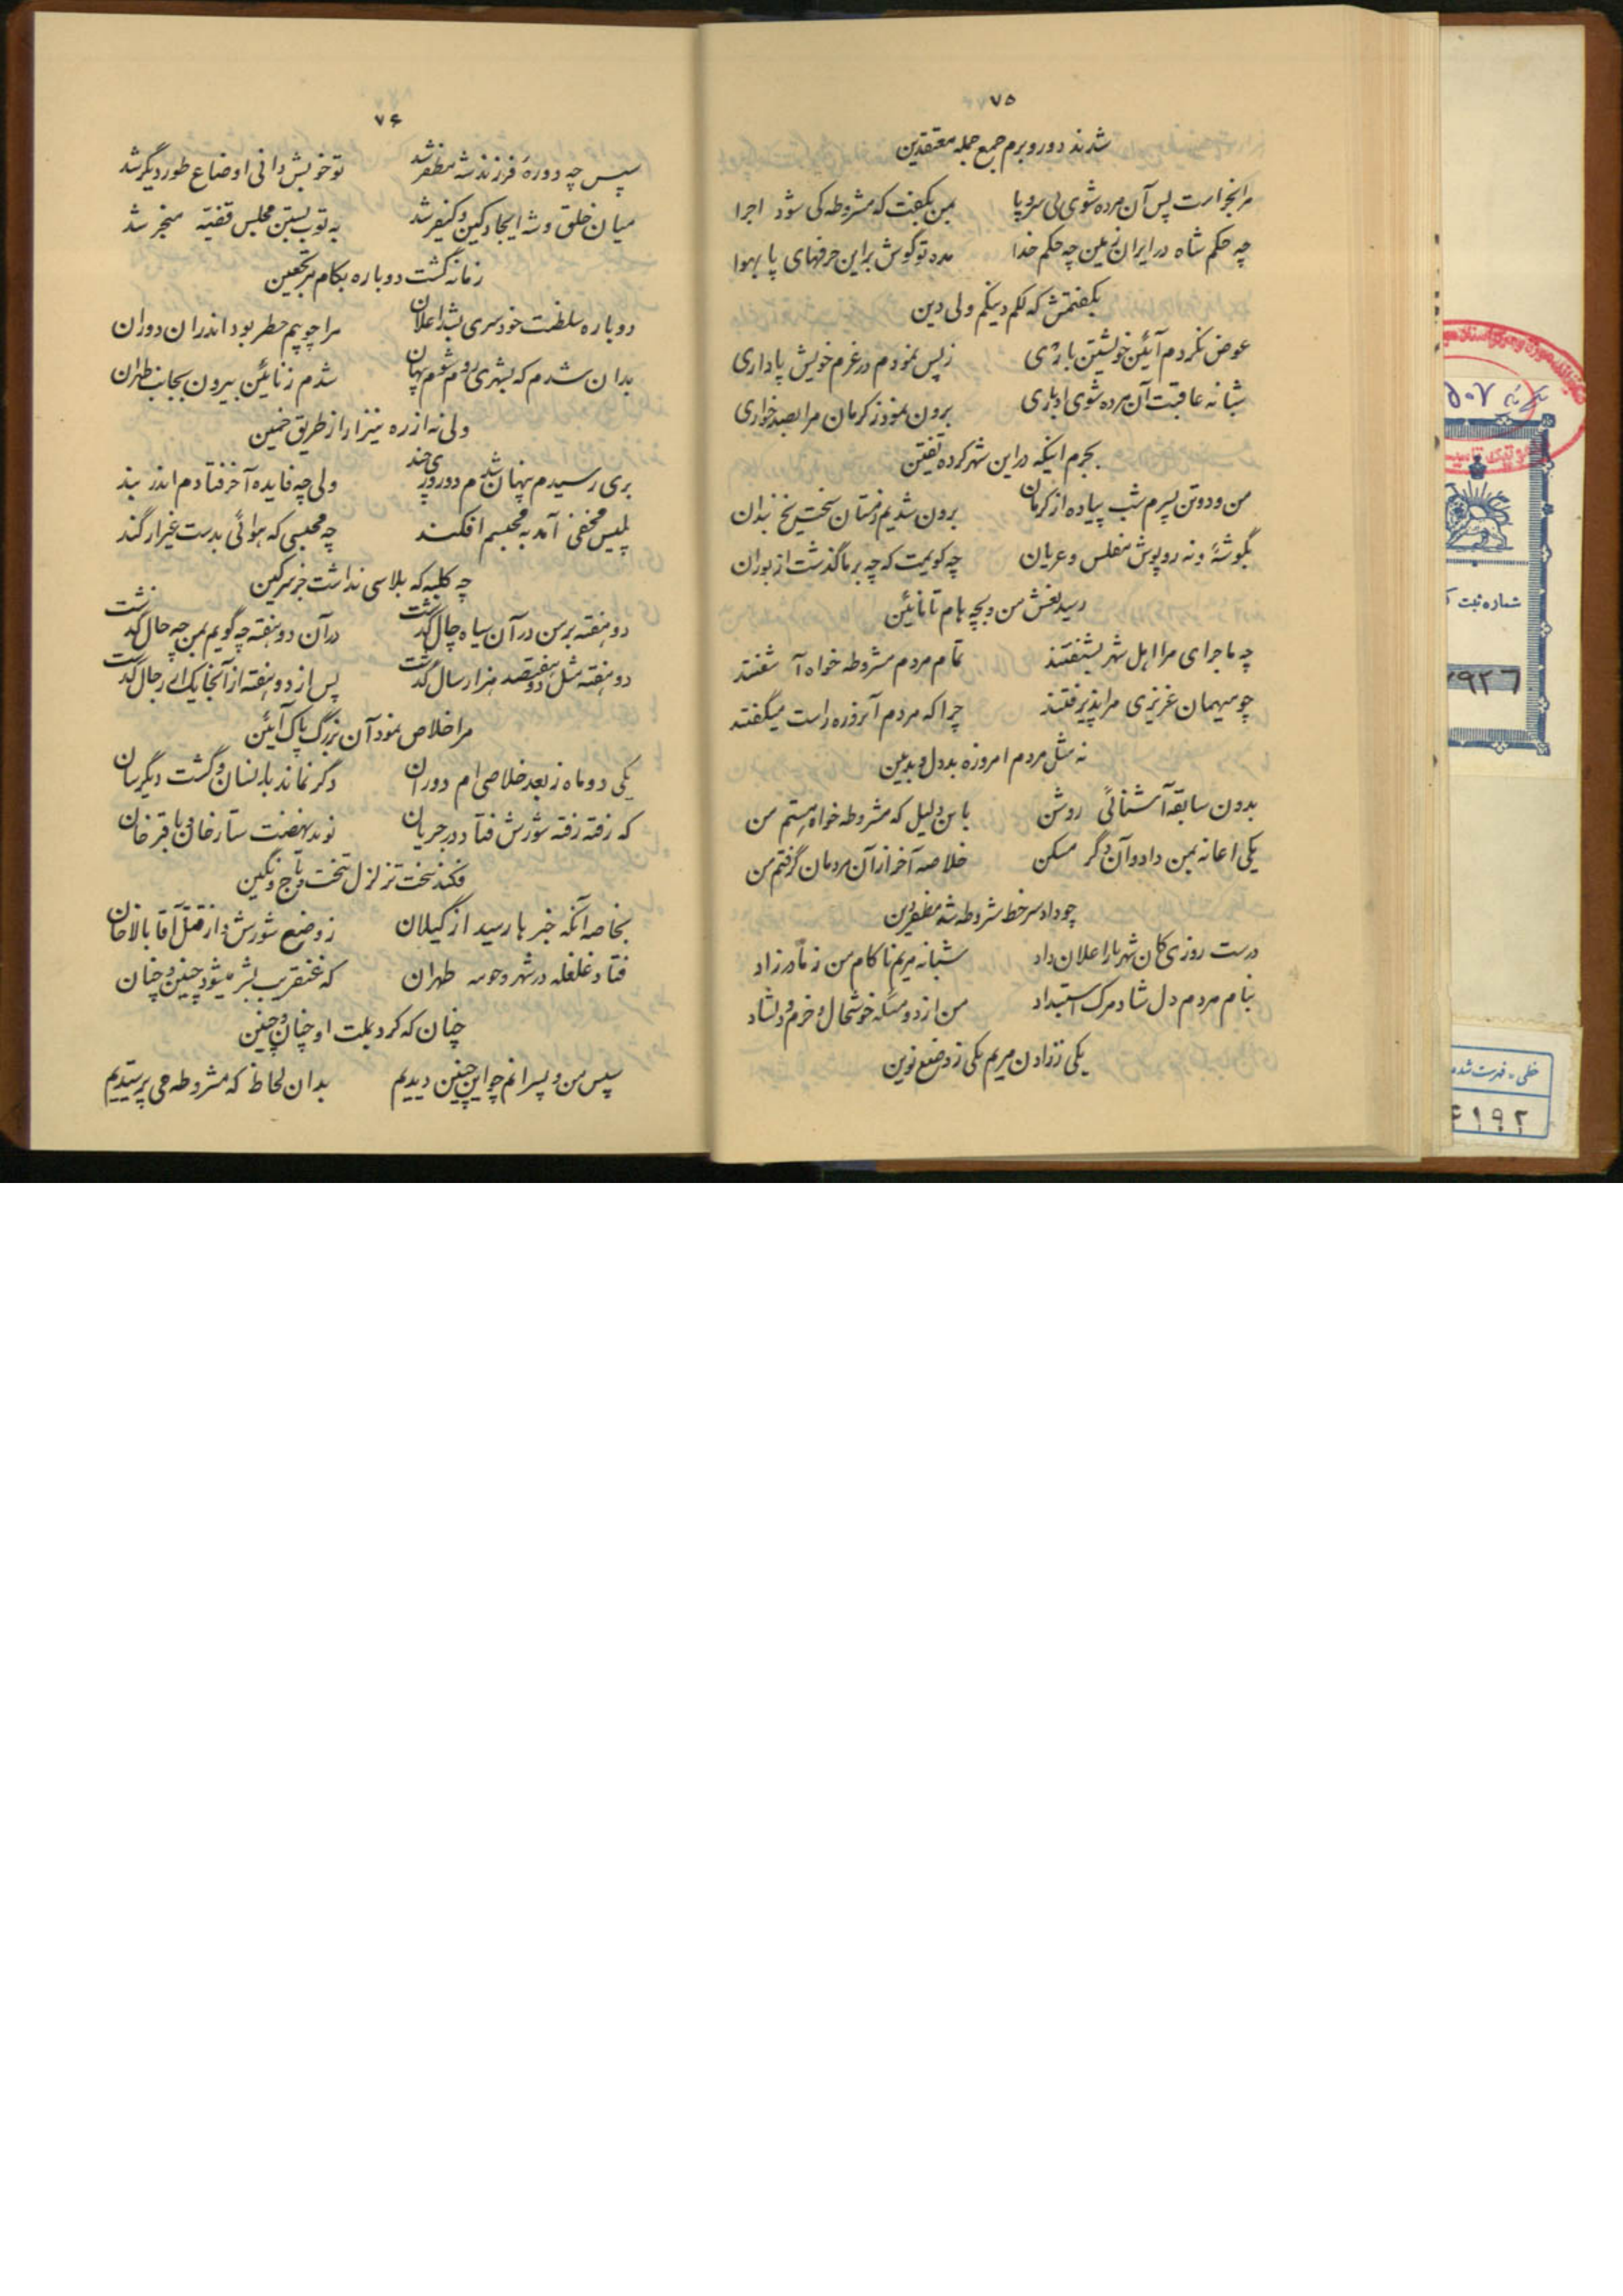 ۷۵
شدند دور و برم جمع جمله معتقدین
مرا بخواست پس آن مرده شوی بی سر و پا بمن بگفت که مشروطه کی شود اجرا
چه حکم شاه در ایران زمین چه حکم خدا مده تو گوش بر این حرفهای پا بهوا
بگفتمش که لکم دینکم ولی دین
عوض نکردم آئین خویشتن باری ز پس نمودم در عزم خویش پاداری
شبانه عاقبت آن مرده شوی ادباری برون نمود ز کرمان مرا بصد خواری
بجرم اینکه در این شهر کرده تفتین
من و دو تن پسرم شب پیاده از کرمان برون شدیم زمستان سخت یخ بندان
نگوشهٔ و نه روپوش مفلس و عریان چه گویمت که چه بر ما گذشت از بوران
رسید نعش من و بچه هام تا نائین
چه ماجرای مرا اهل شهر بشنفتند تمام مردم مشروطه خواه آشفتند
چو میهمان عزیزی مرا پذیرفتند چرا که مردم آنروزه راست میگفتند
نه مثل مردم امروزه بددل و بدبین
بدون سابقه آشنائی روشن باین دلیل که مشروطه خواه هستم من
یکی اعانه بمن داد و آن دگر مسکن خلاصه آخر از آن مردمان گرفتم من
چو داد سر خط مشروطه شه مظفر دین
درست روزی کان شهریار اعلان داد شبانه مریم ناکام من ز مادر زاد
بنام مردم دل شاد مرگ استبداد من از دو مسئله خوشحال و خرم و دلشاد
یکی ز زادن مریم یکی ز وضع نوین
۷۶
سپس چه دورهٔ فرزند شه مظفر شد تو خویش دانی اوضاع طور دیگر شد
میان خلق و شه ایجاد کین و کیفر شد به توپ بستن مجلس قضیه منجر شد
زمانه گشت دوباره بکام مرتجعین
دوباره سلطنت خودسری بشد اعلان مرا چو بیم خطر بود اندر ان دوران
بدان شدم که بشهری روم شوم پنهان شدم ز نائین بیرون بجانب طهران
ولی نه از ره نیزار از طریق خمین
بری رسیدم پنهان شدم دو روزی چند ولی چه فایده آخر فتادم اندر بند
پلیس مخفی آمد به محبسم افکند چه محبسی که هوائی بدست غیر از گند
چه کلبه که پلاسی نداشت جز سرگین
دو هفته بر من در آن سیاه چال گذشت در آن دو هفته چه گویم بمن چه حال گذشت
دو هفته مثل دو هفتصد هزار سال گذشت پس از دو هفته از آنجا یک از رجال گذشت
مرا خلاص نمود آن بزرگ پاک آئین
یکی دو ماه ز بعد خلاصی ام دوران دگر نماند بدانسان و گشت دیگرسان
که رفته رفته شورش فتاد در جریان نوید نهضت ستار خان و باقر خان
فکند سخت تزلزل بتخت و تاج و نگین
بخاصه آنکه خبرها رسید از گیلان ز وضع شورش و از قتل آقا بالا خان
فتاد غلغله در شهر و حومه طهران که عنقریب بشر میشود چنین و چنان
چنان که کرد بملت او چنان و چنین
سپس من و پسرانم چو این چنین دیدیم بدان لحاظ که مشروطه می پرستیدیم
شماره ثبت